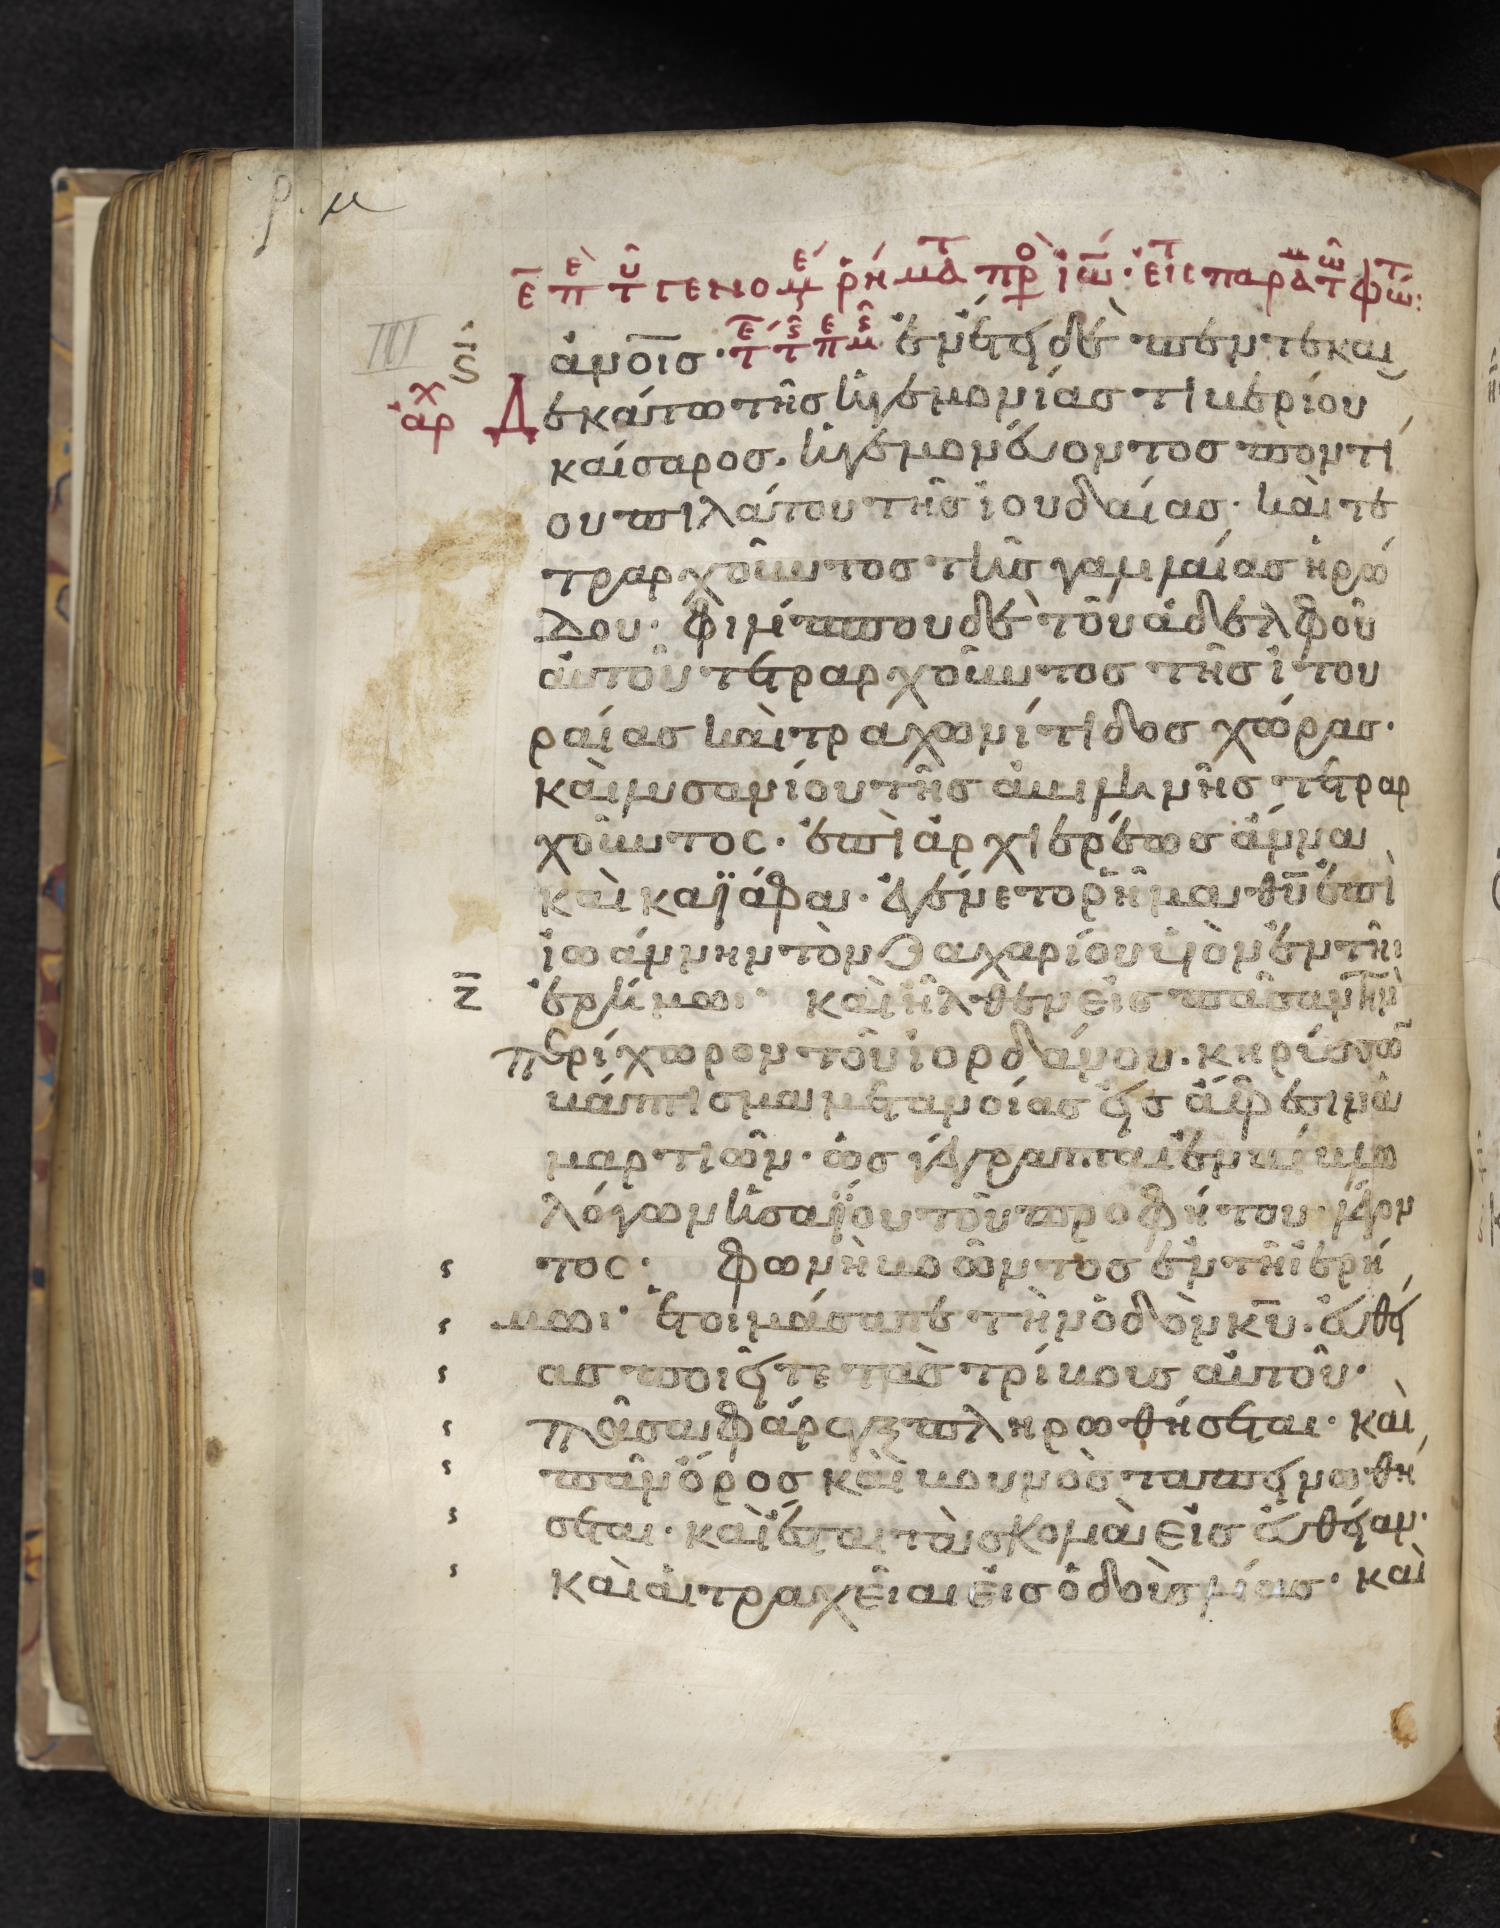 ρ. μ
Ε π τ γενομ ρή μα πρ ιω · εις παρα τ φώ:
III
ς
άνοις · ἐν ἔτει δὲ πεντεκαι
αρχ Δεκάτω τῆς ἡγεμονίας τιβερίου
καίσαρος. ἡγεμονεύοντος ποντί
ου πιλάτου τῆς ἰουδαίας · καὶ τε
τραρχοῦντος τῆς γαλιλαίας ἡρώ
δου · φιλίππου δὲ τοῦ ἀδελφοῦ
αὐτοῦ τετραρχοῦντος τῆς ἰτου
ραίας καὶ τραχωνίτιδος χώρας ·
καὶ λυσανίου τῆς ἀβιληνῆς τετραρ
χοῦντος · ἐπὶ ἀρχιερέως ἄννα
καὶ καϊάφα · ἐγένετο ῥῆμα θ̅υ̅ ἐπὶ
ἰωάννην τὸν ζαχαρίου υἱὸν ἐν τῆι
Ζ ἐρήμωι · καὶ ἦλθεν εἰς πᾶσαν τὴν
περίχωρον τοῦ ἰορδάνου. κηρύσσω
βάπτισμα μετανοίας εἰς ἄφεσιν ἁ
μαρτιῶν · ὡς γέγραπται ἐν βίβλω
λόγων ἡσαΐου τοῦ προφήτου λέγον
τος · φωνὴ βοῶντος ἐν τῆι ἐρή
μωι · ἑτοιμάσατε τὴν ὁδὸν κ̅υ̅. εὐθεί
ας ποιεῖτε τὰς τρίβους αὐτοῦ ·
πᾶσα φάραγξ πληρωθήσεται · καὶ
πᾶν ὄρος καὶ βουνὸς ταπεινωθή
σεται · καὶ ἔσται τὰ σκολιὰ εἰς εὐθεῖαν ·
καὶ αἱ τραχεῖαι εἰς ὁδοὺς λείας · καὶ